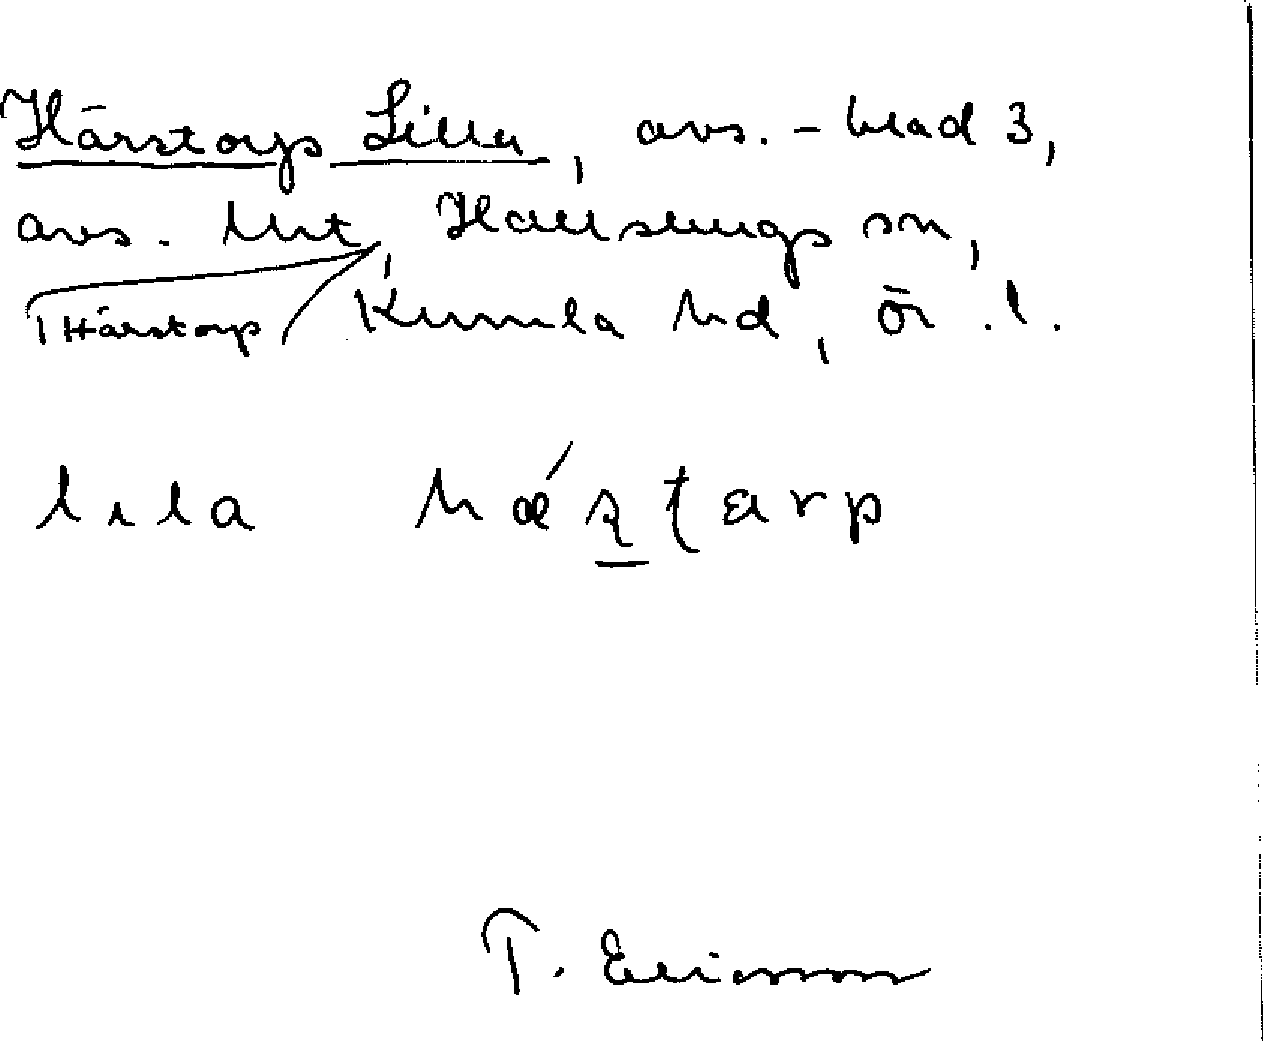 Härstorp Lilla, avs. - blad 3,
avs. Mt, Hallsbergs sn,
i Härstorp
Kumla hd, ör. l.
lɩla hǽʂʈarp
T. Ericsson